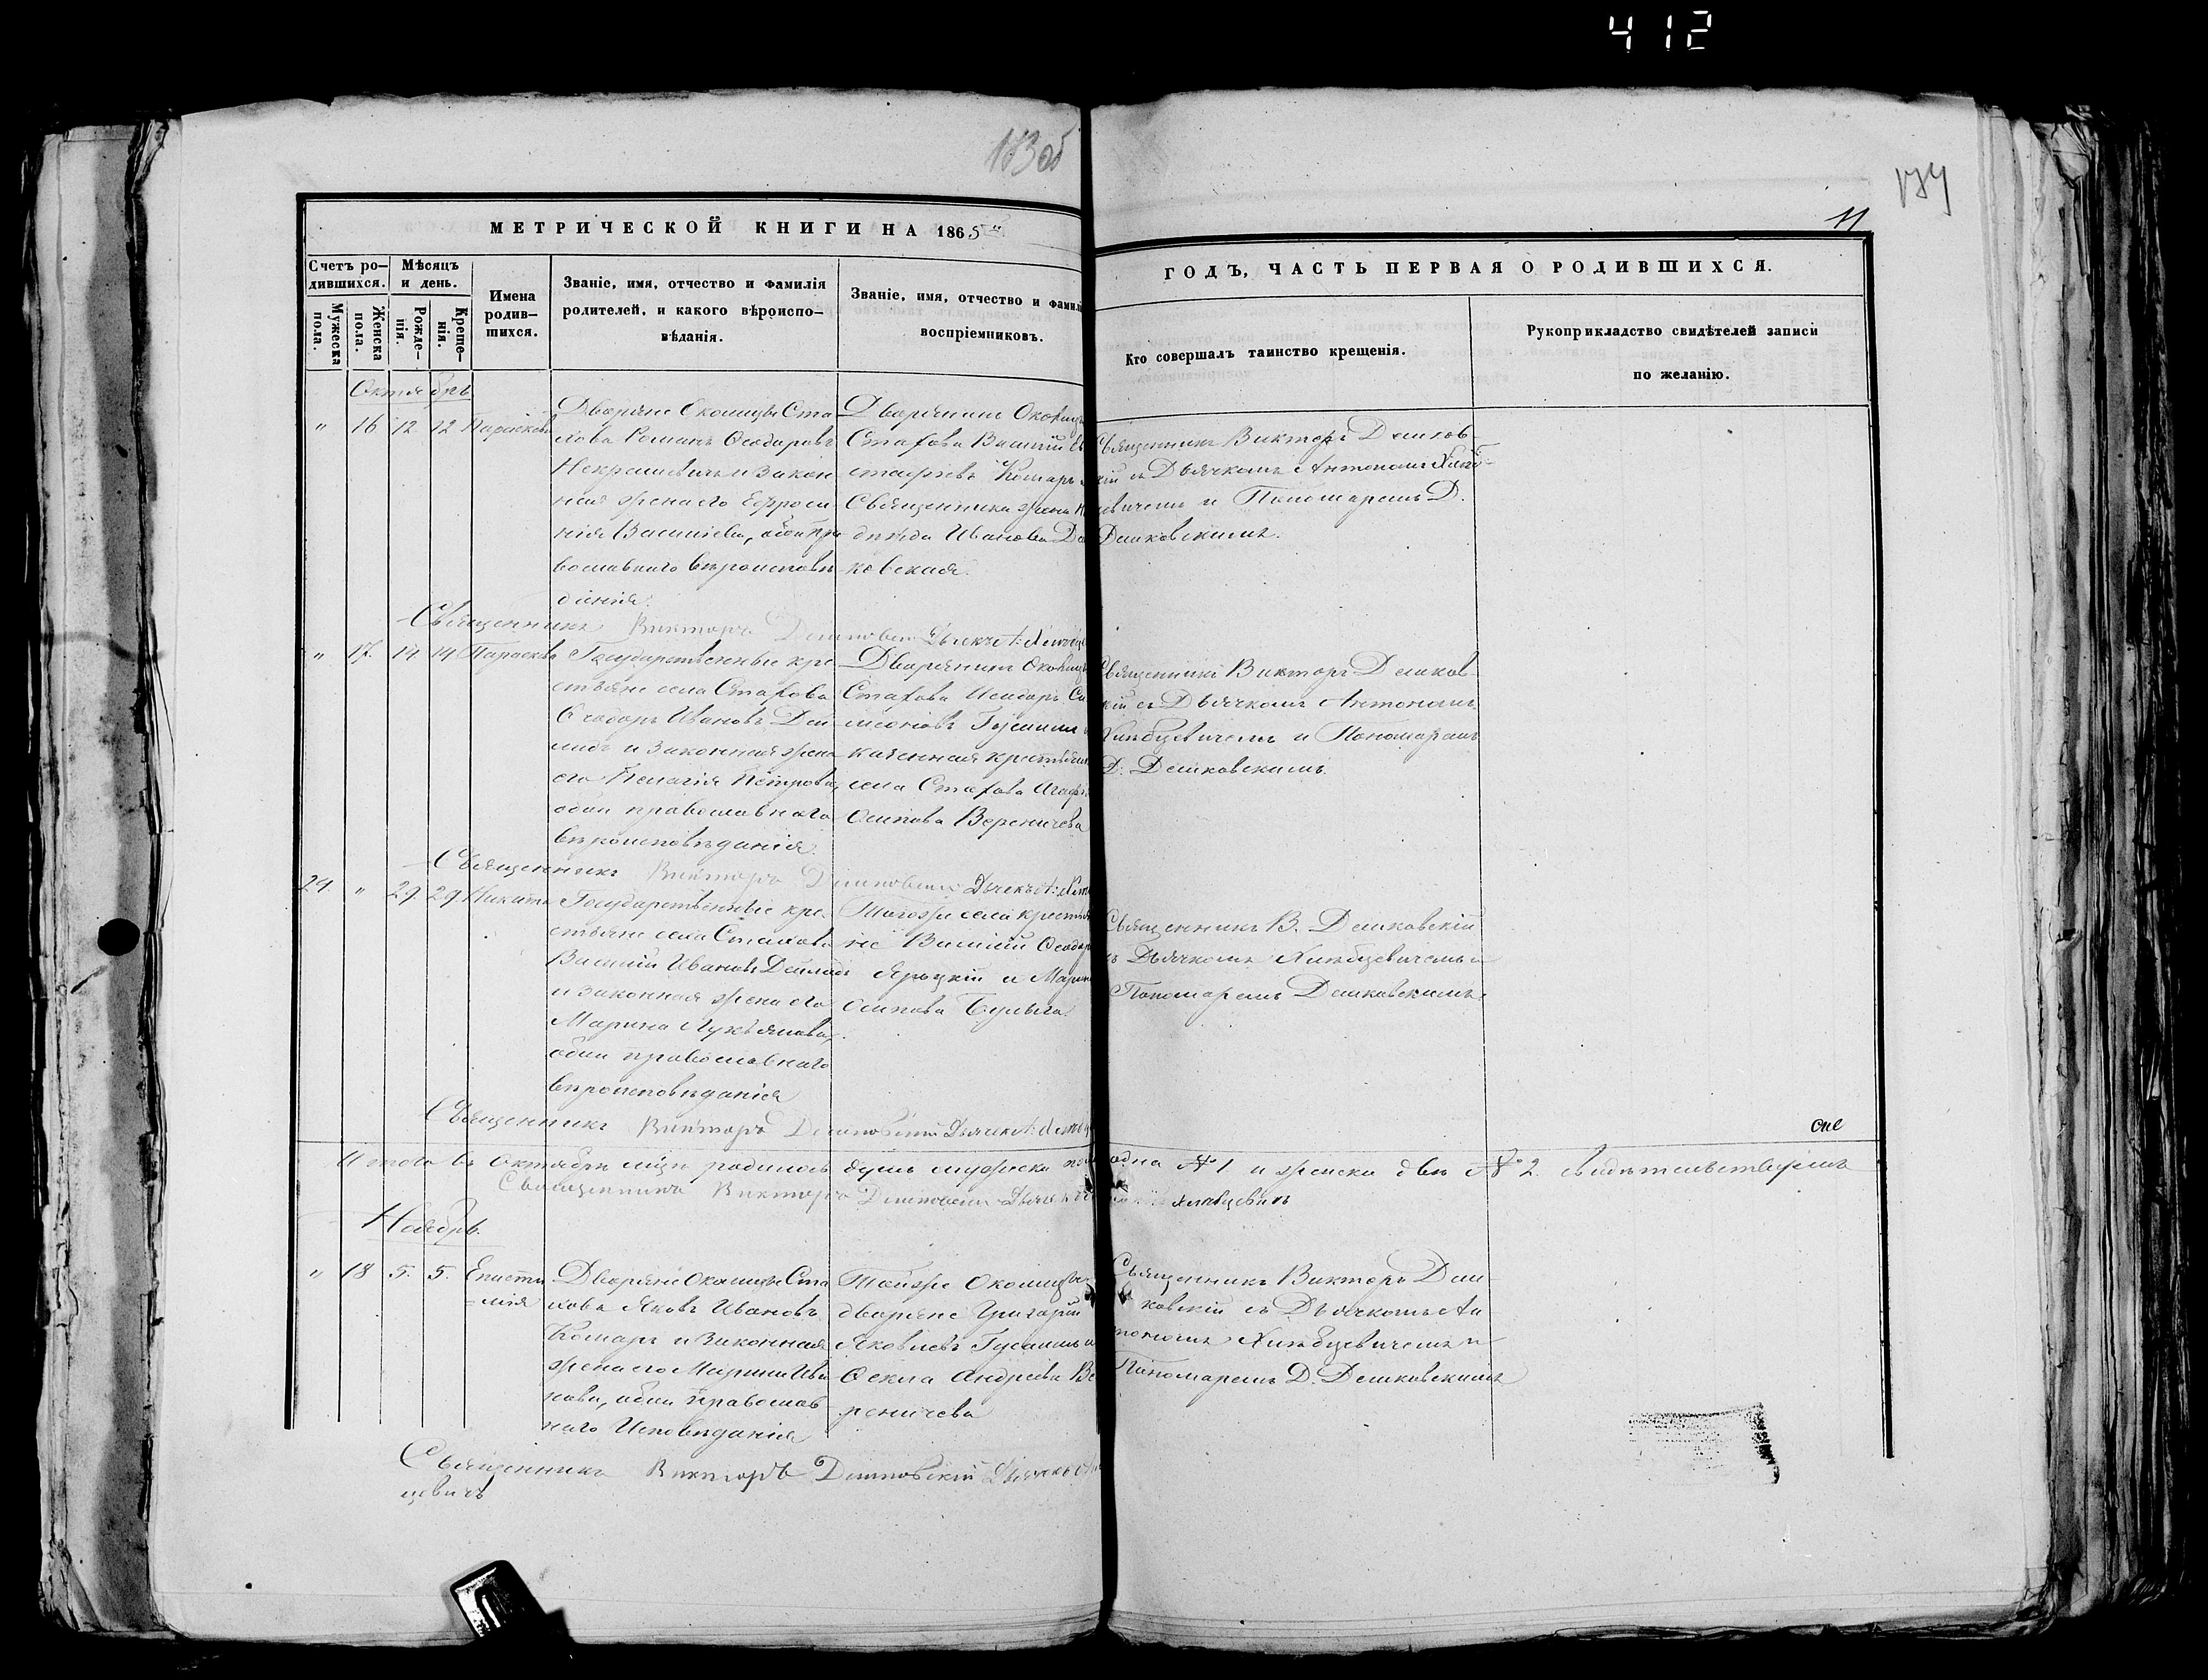 412
173об
174
11
МЕТРИЧЕСКОЙ КНИГИ НА 1865
ГОДЪ, ЧАСТЬ ПЕРВАЯ О РОДИВШИХСЯ.
Счетъ ро-
дившихся.
Мужеска
пола.
Женска
пола.
Мѣсяцъ
и день.
Рожде-
нія.
Креще-
нія.
Имена
родив-
шихся.
Званіе, имя, отчество и фамилія
родителей, и какого вѣроиспо-
вѣданія.
Званіе, имя, отчество и фамилі
воспріемниковъ.
Кто совершалъ таинство крещенія.
Рукоприкладство свидѣтелей записи
по желанію.
Октябрь
" 16 12. 12 Параскева
Дворяне Околицы Ста
хова Романъ Ѳеодоровъ
Некрашевичъ и закон
ная жена его Ефроси
нія Василіева, обои пра
вославнаго вѣроисповѣ
данія.
Дворянинъ Околицы
Стахова Василій Ев
стафіевъ Комаръ и
Священника жена На
дежда Иванова Де
ковская.
Священникъ Викторъ Демков-
скій съ Дьячкомъ Антономъ Хлѣб-
цевичемъ и Пономаремъ Д.
Демковскимъ.
Священникъ Викторъ Демковскій Дьячекъ А. Хлѣбце
" 17. 14 14 Параскева
Государственные кре
стьяне села Стахова
Ѳеодоръ Ивановъ Дей
лидъ и законная жена
его Пелагія Петрова,
обои православнаго
вѣроисповѣданія.
Дворянинъ Околицы
Стахова Исидоръ Си
меоновъ Гусаимъ и
казенная крестьян
села Стахова Агафі
Осипова Вереничева
Священникъ Викторъ Демков-
скій съ Дьячкомъ Антономъ
Хлѣбцевичемъ и Пономаремъ
Д. Демковскимъ.
Священникъ Викторъ Демковскій Дьячекъ А. Хлѣб
24. " 29. 29. Никита
Государственные кре
стьяне села Стахова
Василій Ивановъ Дейлидъ
и законная жена его
Марина Лукьянова,
обои православнаго
вѣроисповѣданія
Тогоже села крестья
не Василій Ѳеодор
Ярыцкій и Марин
Осипова Булыга.
Священникъ В. Демковскій
съ Дьячкомъ Хлѣбцевичемъ и
Пономаремъ Демковскимъ.
Священникъ Викторъ Демковскій Дьячекъ А. Хлѣбц
Итого въ Октябрѣ мцѣ родилось душъ мужеска пола одна № 1 и женска двѣ № 2. свидѣтельствуемъ
Священникъ Викторъ Демковскій Дьячекъ Хлѣбцевичъ
Ноябрь.
" 18 5. 5. Еписти
мія
Дворяне Околицы Ста
хова Яковъ Ивановъ
Комаръ и законная
жена его Марина Ива
нова, обои православ
наго Исповѣданія
Тойже Околицы
дворяне Григорій
Яковлевъ Гусаимъ и
Ѳекла Андреева Ве
реничева
Священникъ Викторъ Дем-
ковскій съ Дьячкомъ Ан
тономъ Хлѣбцевичемъ и
Пономаремъ Д. Демковскимъ
Священникъ Викторъ Демковскій Дьячекъ
цевичъ